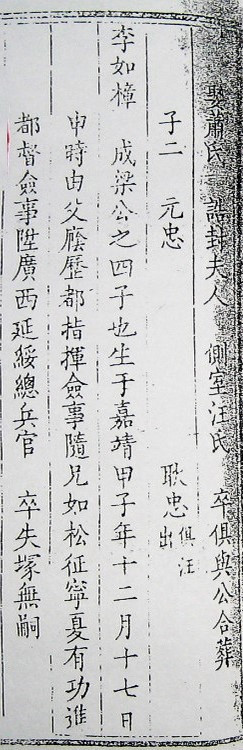 娶蕭氏 誥封夫人 側室汪氏 卒俱與公合葬
子二 元忠 耿忠俱汪出
李如樟 成梁公之四子也生于嘉靖甲子年十二月十七日
申時由父廕歷都指揮僉事隨兄如松征寧夏有功進
都督僉事陞廣西延綏總兵官 卒失塚無嗣